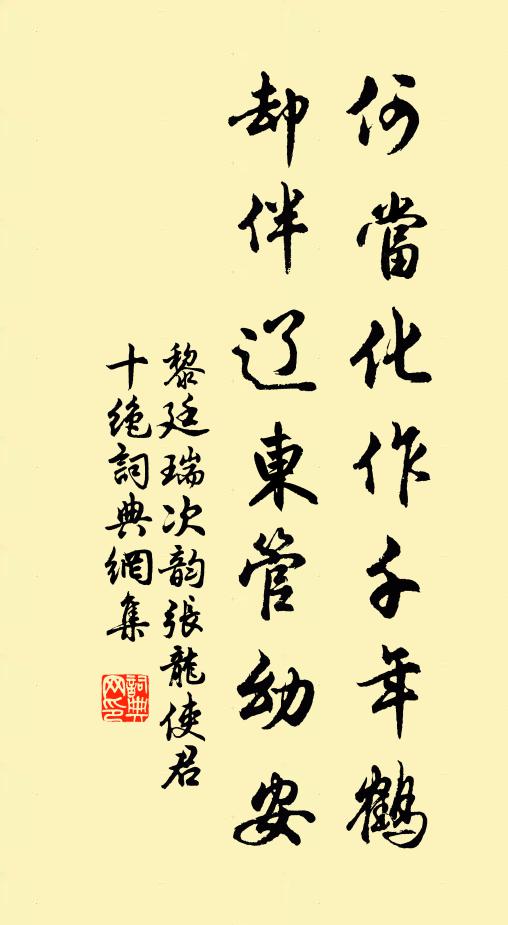 何當化作千年鶴
却伴辽東管幼安
黎廷瑞次韵張龍使君
十絶詞典網集
詞典
网印